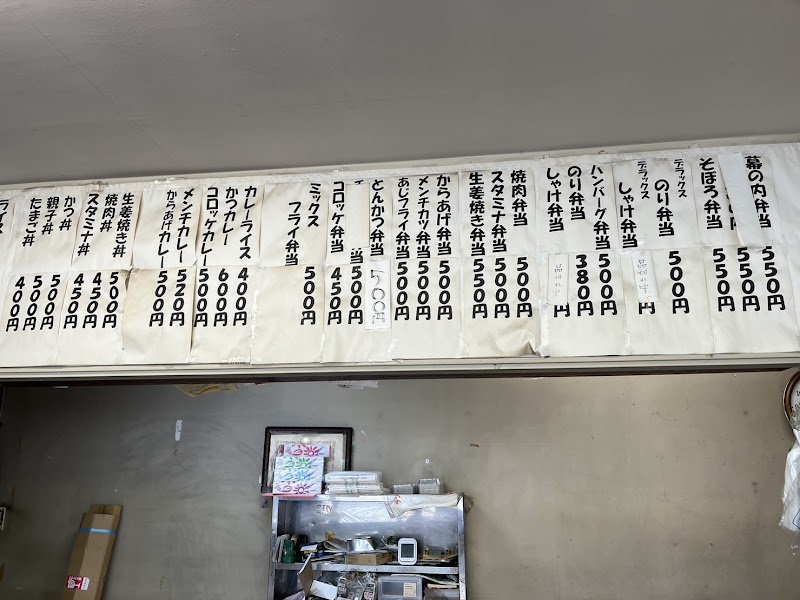 幕の内弁当 550円
550円
そぼろ弁当 550円
デラックス
のり弁当 500円
デラックス
しゃけ弁当 円
ハンバーグ弁当 500円
のり弁当 380円
しゃけ弁当 円
焼肉弁当 500円
スタミナ弁当 500円
生姜焼き弁当 550円
からあげ弁当 500円
メンチカツ弁当 500円
あじフライ弁当 500円
とんかつ弁当 500円
当 500円
コロッケ弁当 450円
ミックス
フライ弁当 500円
カレーライス 400円
かつカレー 600円
コロッケカレー 500円
メンチカレー
からあげカレー 500円
生姜焼き丼 500円
焼肉丼 450円
スタミナ丼 450円
かつ丼 500円
親子丼 500円
たまご丼 400円
イス